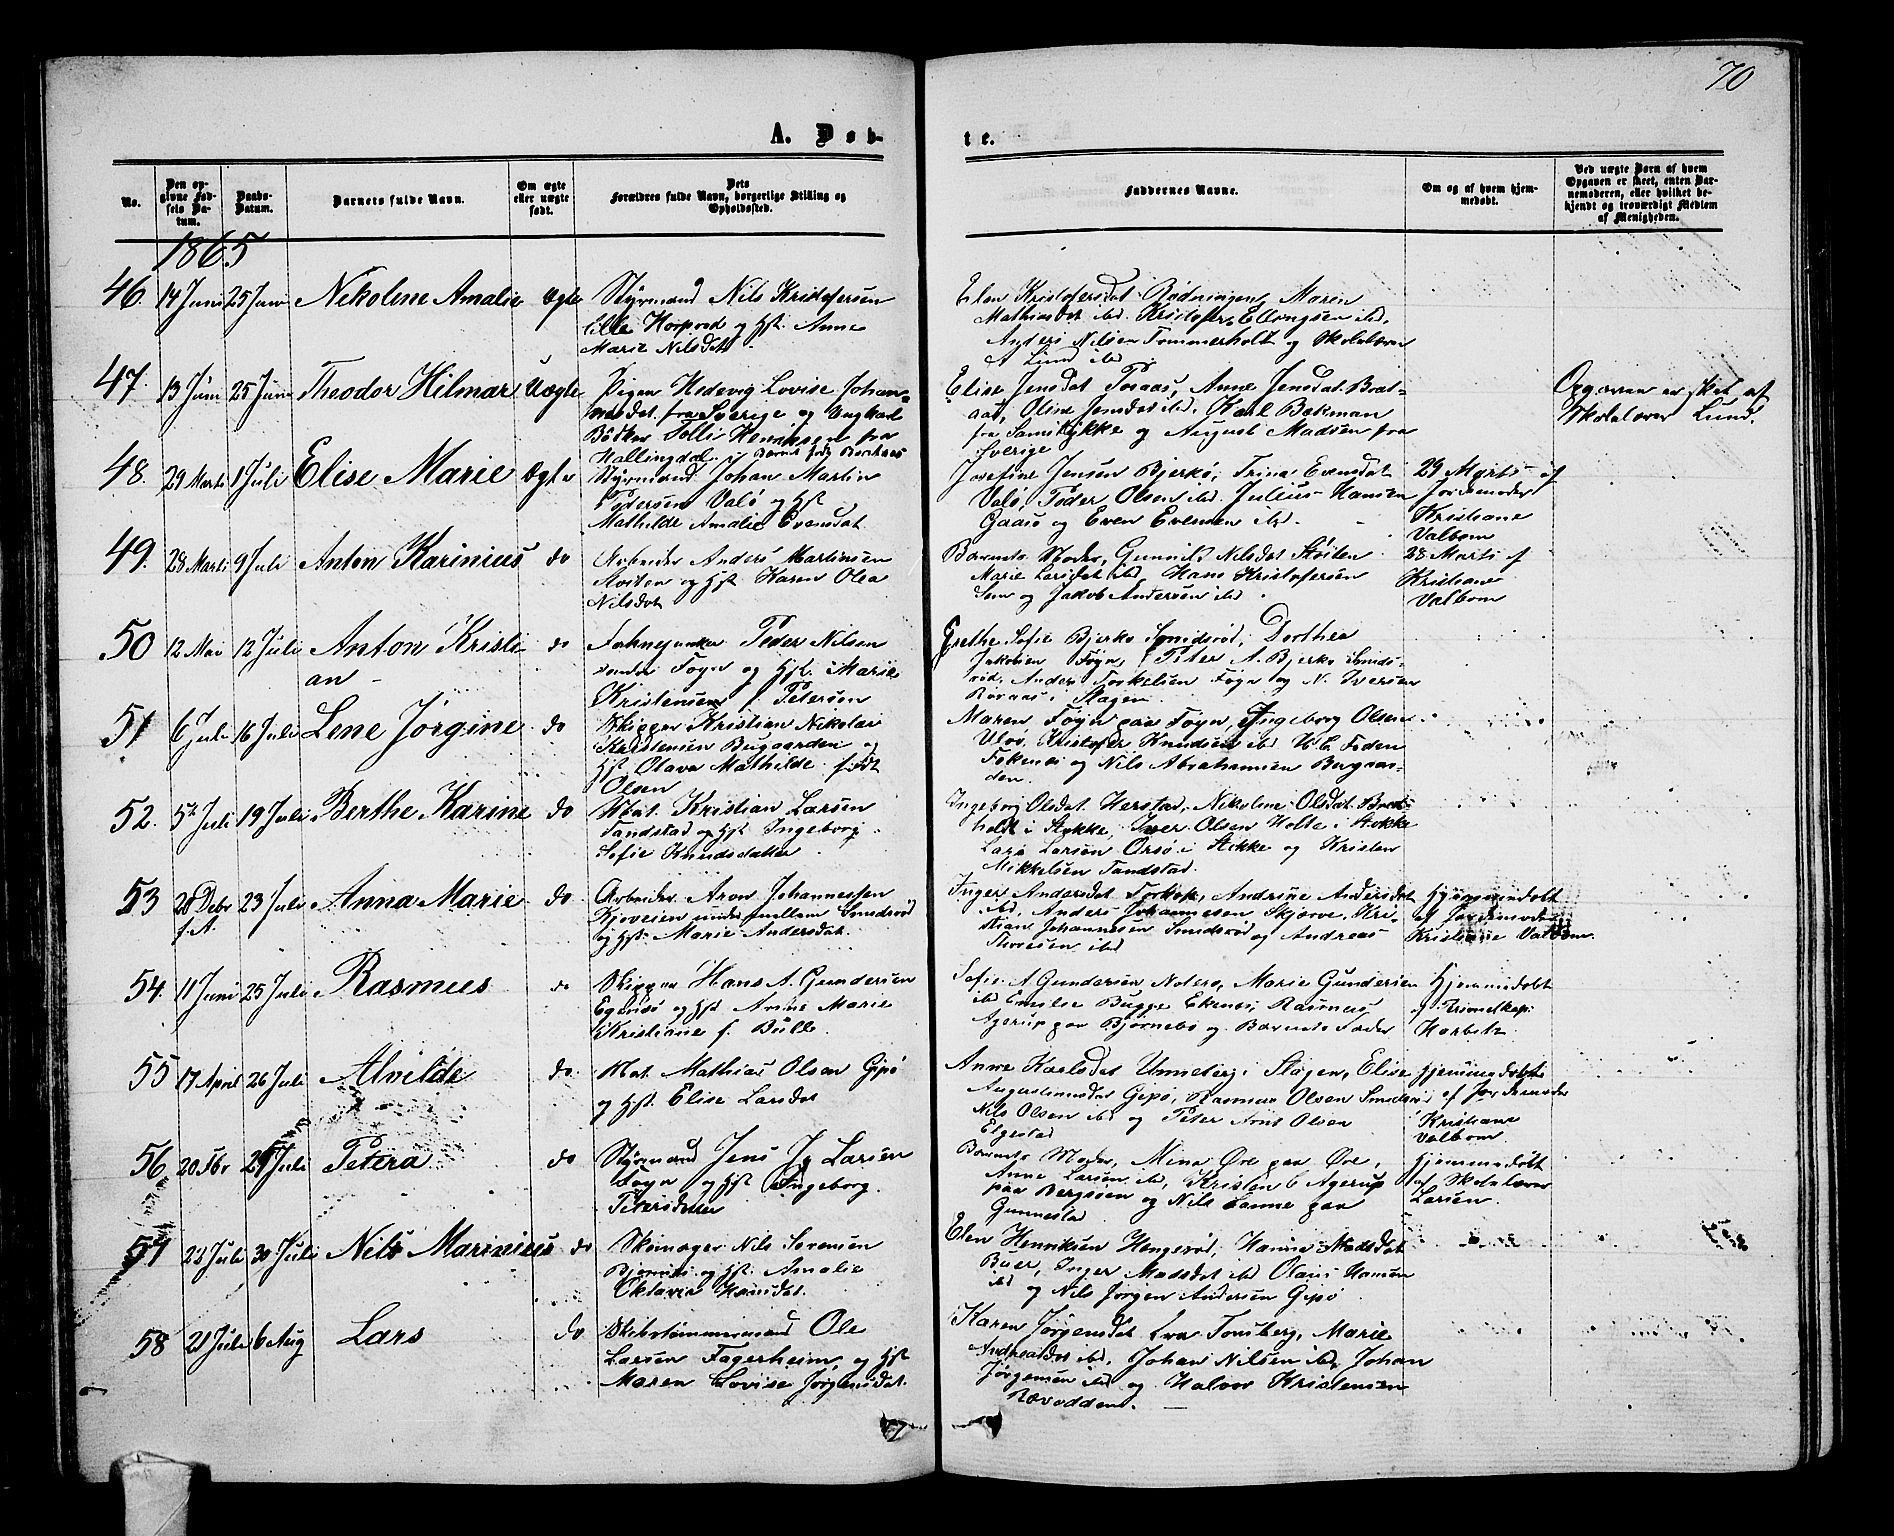 70
A. Døb-
te.
No.
Den opgivne Fødsels Datum.
Daabs-Datum.
Barnets fulde Navn.
Om ægte eller uægte født.
Dets Forældres fulde Navn, borgerlige Stilling og Opholdssted.
Faddernes Navne.
Om og af hvem hjemmedøbt.
Ved uægte Børn af hvem Opgaven er skeet, enten Barnemoderen, eller hvilket bekjendt og troværdigt Medlem af Menigheden.
1865
46. 14 Juni 25 Juni Nikoline Amalie Ægte
Styrmand Nils Kristofersen
lille og Hst. Anne
Marie Nilsdat.
Elen Kristofersdat Rødningen, Maren
Mathiasdat ibd. Kristofer Ellingsen ibd.
Anders Nilsen Tømmerholt og Skolelærer
A Lund ibd.
47. 13 Juni 25 Juni Theodor Hilmar Uægte
Pigen Hedevig Lovise Johan-
nesdat. fra Sverige og Ungkarl
Bødker Tolli Henriksen fra
Hallingdal.
Elise Jensdat, Anne Jensdat
Oline Jensdat ibd. Karl Bekman
fra og August Madsen fra
Sverige
Opgaven er skeet af
Skolelærer Lund.
48. 29 Marts 1 Juli Elise Marie Ægte
Styrmand Johan Martin
Pedersen Valø og Hst
Mathilde Amalie Evensdat.
Josefine Jensen Bjerkø, Trina Evensdat
Valø, Peder Olsen ibd. Julius Hansen
Gaasø og Even Evensen ibd.
29 Marts af
Jordemoder
Kristiane
Valbom
49. 28 Marts 9 Juli Anton Karinius do
Arbeider Anders Martinsen
og Hst. Karen Olea
Nilsdat
Barnets Moder, Gunnild Nilsdat
Marie Larsdat ibd, Hans Kristofersen
Sem og Jakob Andersen ibd.
28 Marts af
Kristiane
Valbom
50 12 Mai 12 Juli Anton Kristi- do
an
Fahnejunker Peder Nilsen
søndre Føyn og Hst. Marie
Kristensen f. Petersen
Grethe Sofie Bjerkø Smidsrød, Dorthea
Jakobsen Føyn, Peter A. Bjerkø Smids-
rød, Anders Torkelsen Føyn og N. Iversen
Raraas i Slagen.
51 6 Juli 16 Juli Lene Jørgine do
Skipper Kristian Nikolai
Kristensen Bugaarden og
Hst Olava Mathilde født
Olsen
Maren Føyn paa Føyn, Ingeborg Olsen
Ulvø, Kristofer Knudsen ibd H. C. Foden
og Nils Abrahamsen Bugaar-
den.
52. 5te Juli 19 Juli Berthe Karine do
Mat. Kristian Larsen
Sandstad og Hst Ingeborg
Sofie Knudsdatter
Ingeborg Olsdat. Herstad, Nikoline Olsdat. Bræk-
holt i Stokke, Iver Olsen Holte i Stokke
Lars Larsen Orsø i Stokke og Kristen
Mikkelsen Sandstad.
53 28 Debr 23 Juli Anna Marie do
f. A.
Arbeider Aron Johannessen
mellem Smidsrød
og Hst. Marie Andersdat.
Inger Andersdat Torkop, Andrine Andersdat
ibd, Anders Johannesen Skjerve, Kri-
stian Johannesen Smidsrød og Andreas
ibd
Hjemmedøbt
af Jordemoder
Kristiane Valbom.
54. 11 Juni 25 Juli Rasmus do
Skipper Hans A. Gundersen
Egenæs og Hst Anne Marie
Kristiane f. Bulle.
Sofie A Gundersen Nøterø, Marie Gundersen
ibd Emilie Bugge Ekenæs, Rasmus
Agerup paa Bjørnebø og Barnets Fader
Hjemmedøbt
af
Harbitz
55 17 April 26 Juli Alvilde do.
Mat. Mathias Olsen Gipø
og Hst. Elise Larsdat
Anne Karlsdat Unneberg i Slagen, Elise
Augustinusdat Gipø, Rasmus Olsen Smidsrød
Nils Olsen ibd og Peter Arnt Olsen
Elgestad
Hjemmedøbt
af Jordemoder
Kristiane
Valbom
56 20 Fbr 29 Juli Petera do
Styrmand Jens Jg Larsen
Føyn og Hst Ingeborg
Petersdatter
Barnets Moder, Mina Øre paa Øre,
Anne Larsen ibd, Kristen C Agerup
paa Bergsøen og Nils paa
Gunnestad
Hjemmedøbt
af Skolelærer
Larsen.
57 22 Juli 30 Juli Nils Marinius do
Skomager Nils Sørensen
Bjørnebø og Hst Amalie
Oktavia Hansdat.
Elen Henriksen Hengsrød, Hanna Madsdat
Buer, Inger Madsdat ibd Olaus Hansen
ibd og Nils Jørgen Andersen Gipø
58 21 Juli 6 Aug Lars do
Skibstømmermand Ole
Larsen Fagerheim og Hst
Maren Lovise Jørgensdat.
Karen Jørgensdat Tønsberg, Marie
Andreasdat ibd, Johan Nilsen ibd, Johan
Jørgensen ibd og Halvor Kristensen
Ræveodden.